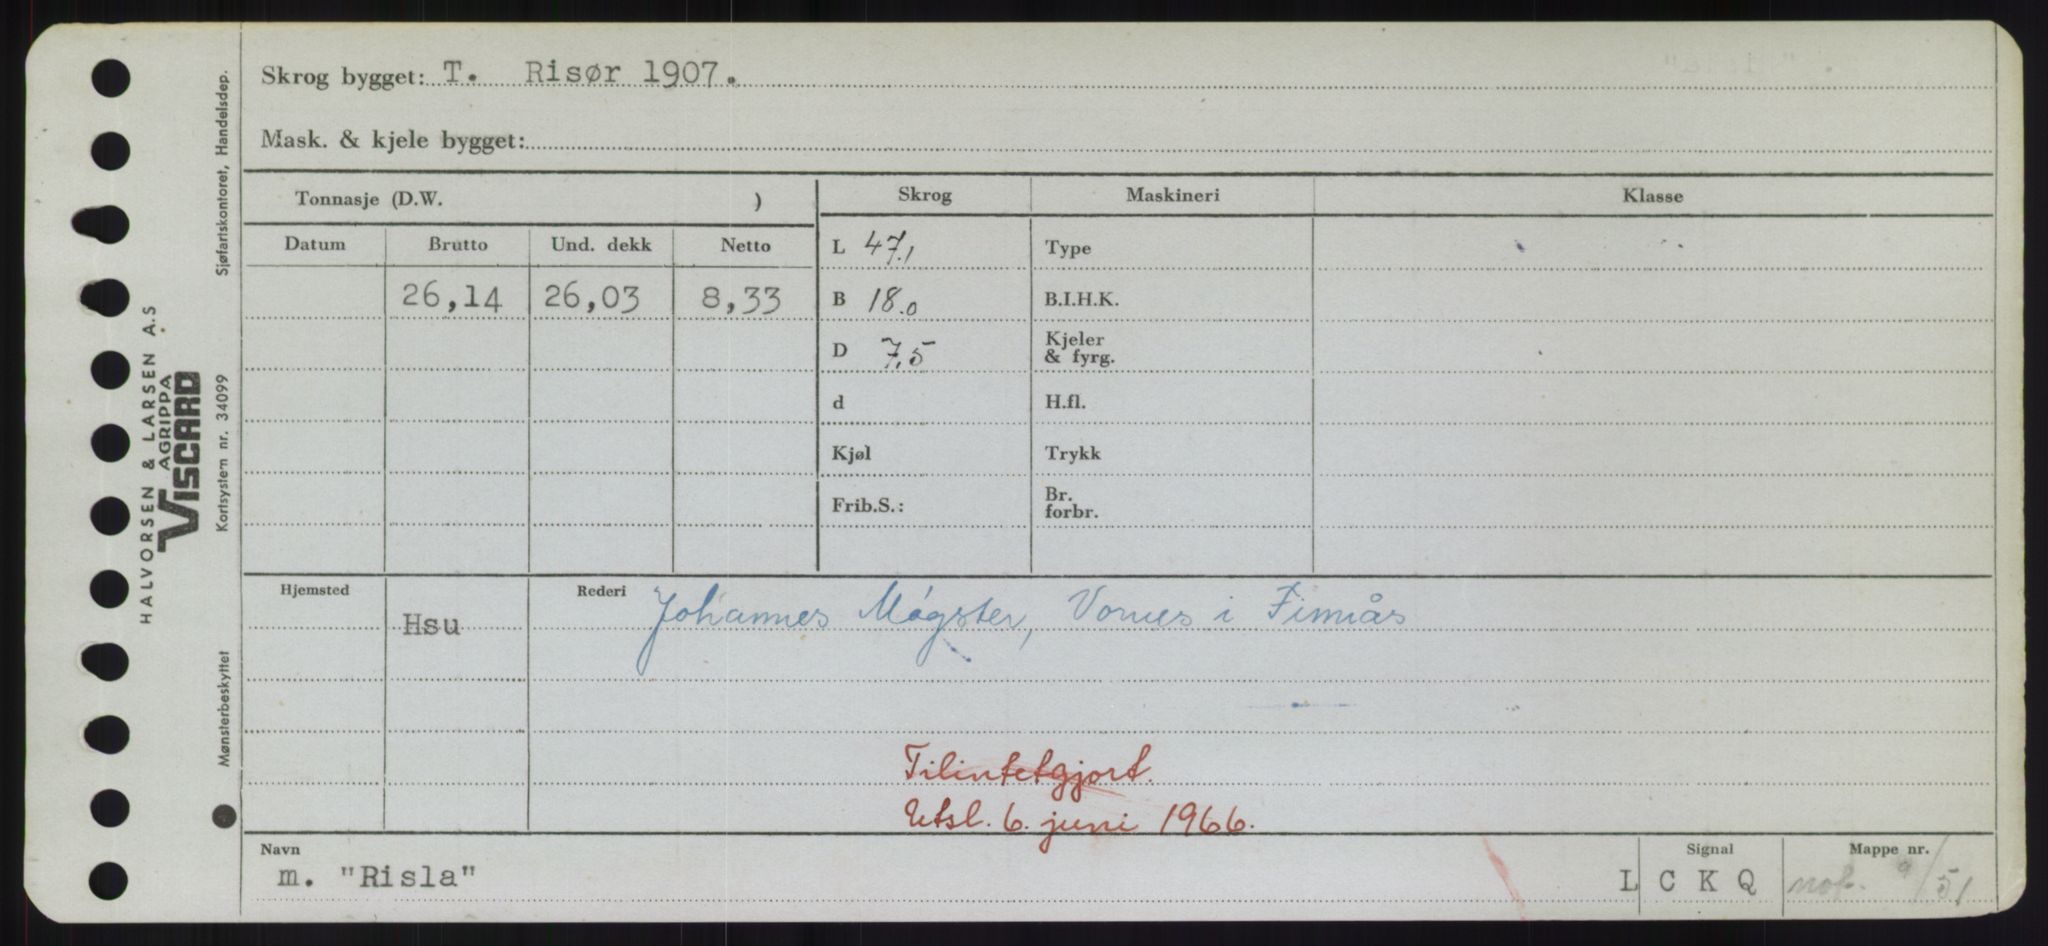 Skrog bygget: T. Risør 1907.
Mask. & kjele bygget:
Tonnasje (D.W. )
Skrog Maskineri Klasse
Datum Brutto Und. dekk Netto
L 47,1 Type
26,14 26,03 8,33
B 18.0 B.I.H.K.
D 7,5 Kjeler & fyrg.
d H.fl.
Kjøl Trykk
Frib.S.: Br. forbr.
Hjemsted Hsu Rederi Johannes Møgster, i Finnås
Tilintetgjort.
Utsl. 6. juni 1966.
Navn Signal Mappe nr.
m. "Risla" L C K Q 9/51
Sjøfartskontoret, Handelsdep.
HALVORSEN & LARSEN A.S
AGRIPPA
VISCARD
Kortsystem nr. 34099
Mønsterbeskyttet